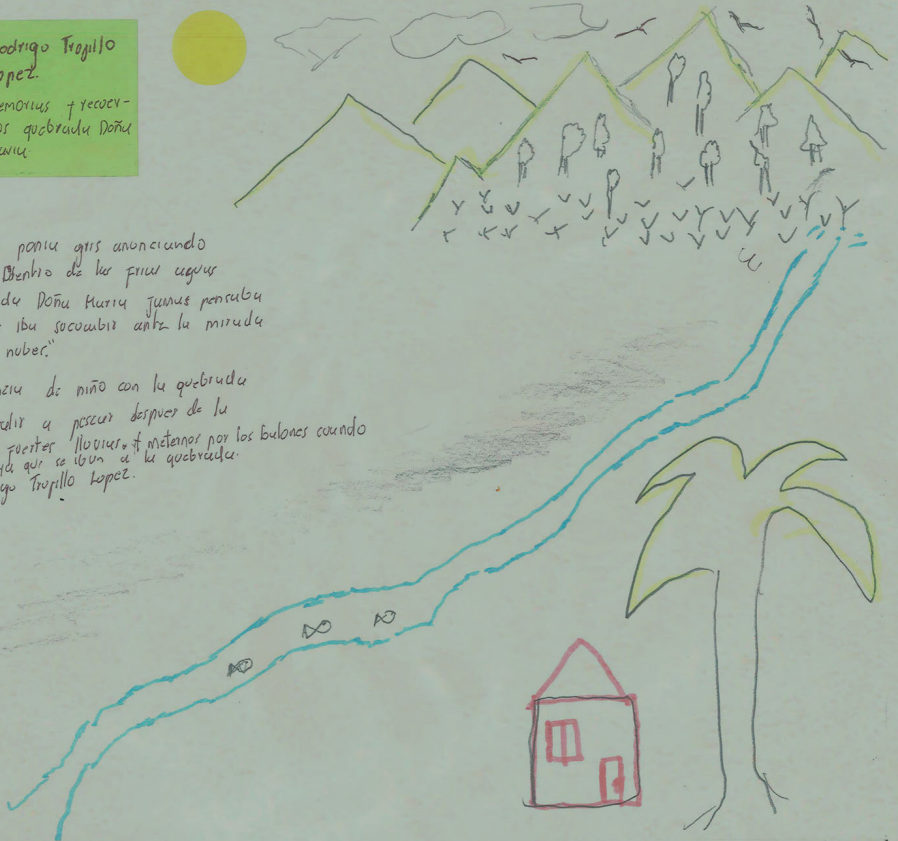 odrigo Trojillo
opez.
emorias y recoer-
os quebrada Doña
aria.
ponia gris anunciando
Dentro de las frias aguas
da Doña Maria jamas pensaba
iba socombir ante la mirada
nubes."
ncia de niño con la quebrada
alir a pescar despues de la
fuertes lluvias, y meternos por los bulones cuando
ya que se iban a la quebrada.
go Trojillo Lopez.